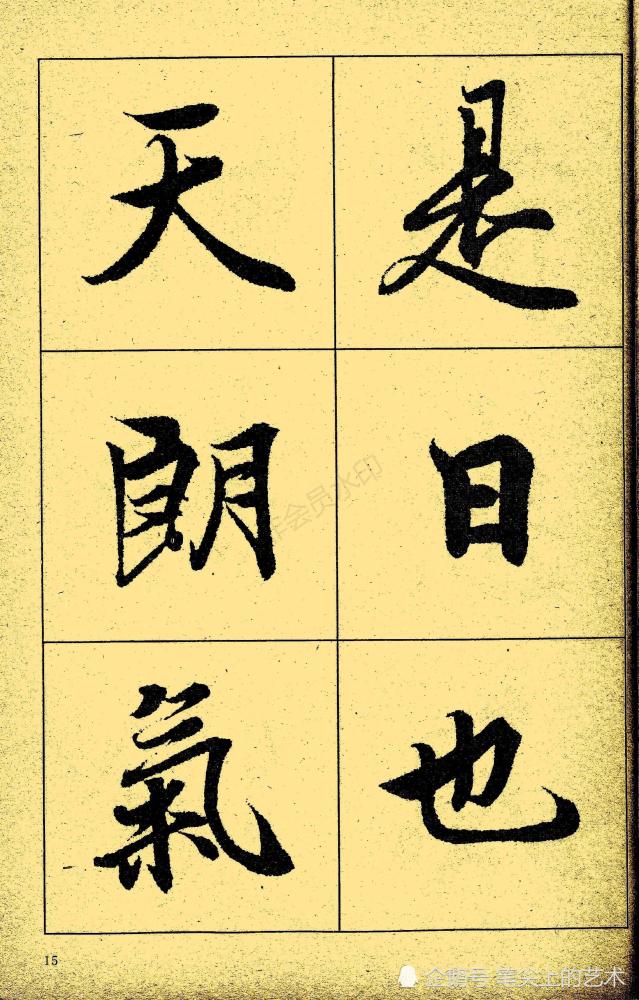 是日也
天朗氣
会员水印
15
企鹅号 笔尖上的艺术